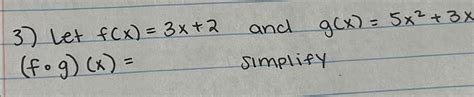 3) Let f(x) = 3x+2 and g(x) = 5x² + 3x
(f∘g)(x) = simplify